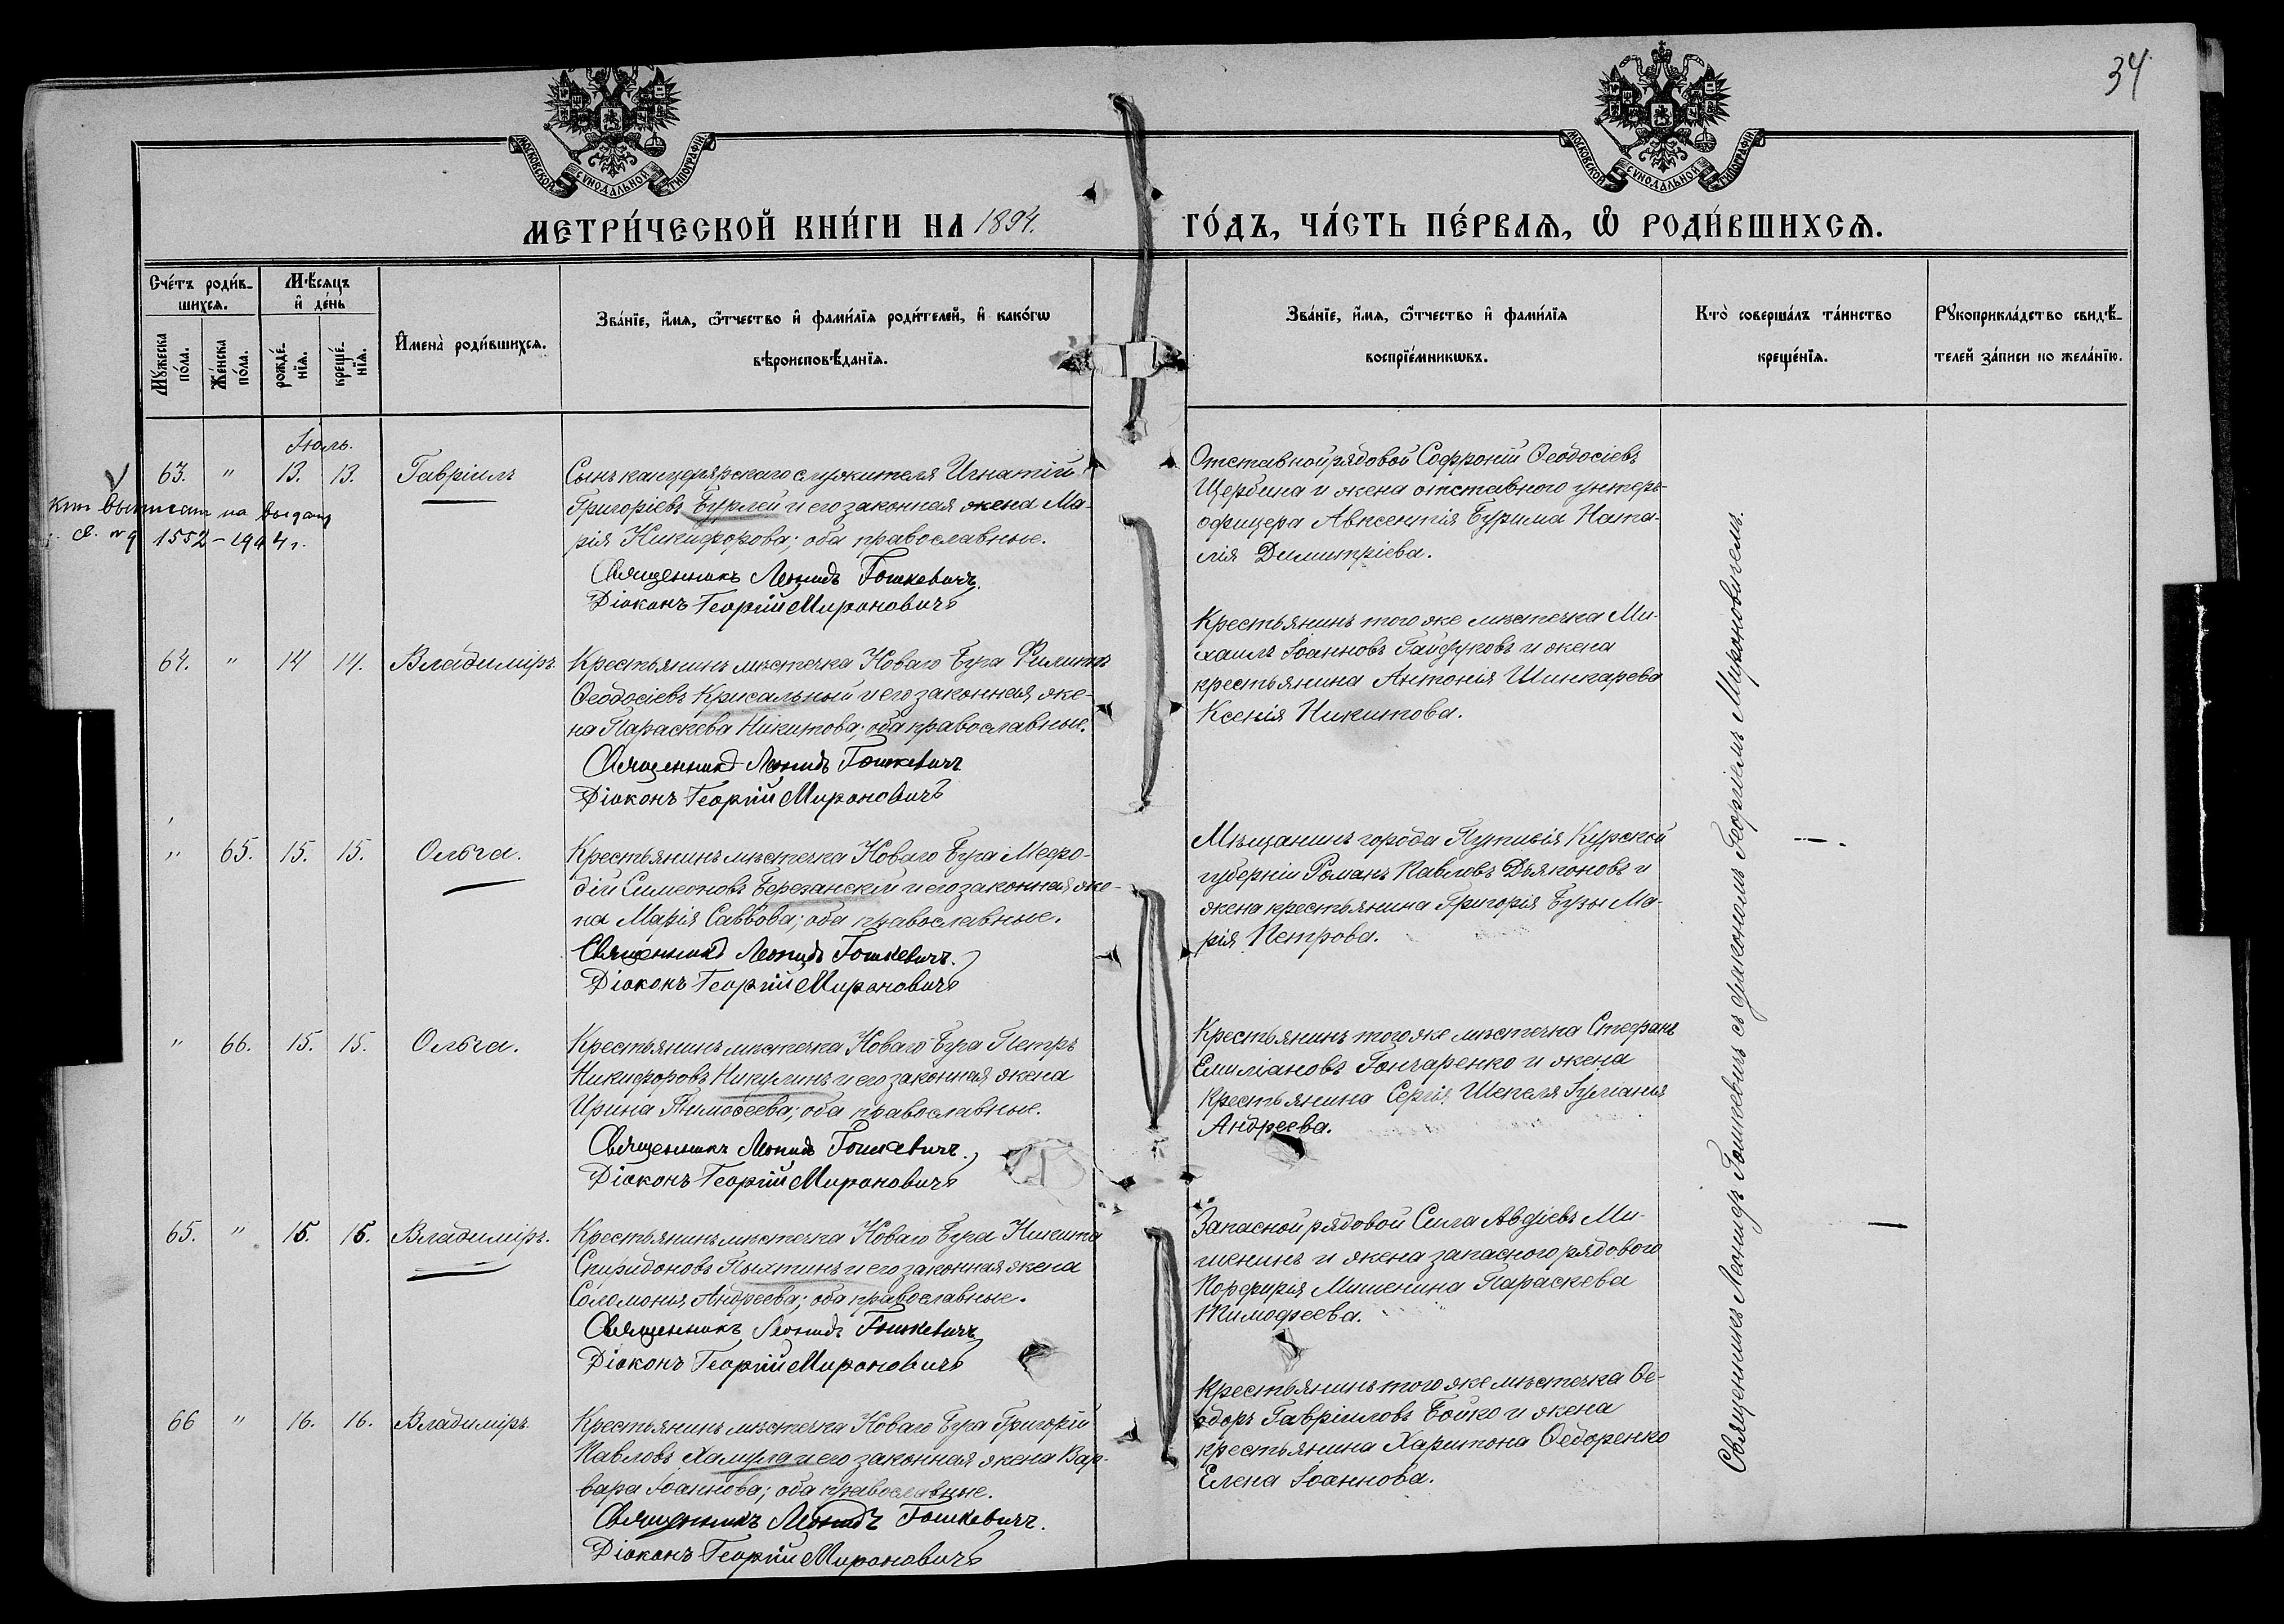 34
МОСКОВСКОЙ СѴНОДАЛЬНОЙ ТИПОГРАФІИ
МОСКОВСКОЙ СѴНОДАЛЬНОЙ ТИПОГРАФІИ
МЕТРИ́ЧЕСКОЙ КНИ́ГИ НА 1894. ГО́ДЪ, ЧА́СТЬ ПЕ́РВАѦ, Ѽ РОДИ́ВШИХСѦ.
Сче́тъ роди́в-
шихсѧ.
Мꙋ́жеска по́ла.
Же́нска по́ла.
Мѣ́сѧцъ
и҆ де́нь
рожде́-нїѧ.
креще́-нїѧ.
И҆мена̀ роди́вшихсѧ.
Зва́нїе, и҆́мѧ, ѻ҆́тчество и҆ фами́лїѧ роди́телей, и҆ како́гѡ
вѣроисповѣ́данїѧ.
Зва́нїе, и҆́мѧ, ѻ҆́тчество и҆ фами́лїѧ
воспрїе́мникѡвъ.
Кто̀ соверша́лъ та́инство
креще́нїѧ.
Рꙋкоприкла́дство свидѣ́-
телей за́писи по жела́нїю.
Іюль.
63. " 13. 13. Гавріилъ
Сынъ канцелярскаго служителя Игнатій
Григоріевъ Бурлей и его законная жена Ма-
рія Никифорова; оба православные.
Священникъ Леонидъ Гошкевичъ.
Діаконъ Георгій Мироновичъ
Отставной рядовой Софроній Ѳеодосіевъ
Щербина и жена отставного унтеръ-
офицера Авксентія Бурима Ната-
лія Димитріева.
на выдачу
1552 - 1944 г.
64. " 14 14. Владиміръ.
Крестьянинъ мѣстечка Новаго Буга Филиппъ
Ѳеодосіевъ Крисальный и его законная же-
на Параскева Никитова; оба православные.
Священникъ Леонидъ Гошкевичъ
Діаконъ Георгій Мироновичъ
Крестьянинъ того же мѣстечка Ми-
хаилъ Іоанновъ Гайдуковъ и жена
крестьянина Антонія Шинкарева
Ксенія Никитова.
" 65. 15. 15. Ольга.
Крестьянинъ мѣстечка Новаго Буга Меѳо-
дій Симеоновъ Березанскій и его законная же-
на Марія Саввова; оба православные.
Священникъ Леонидъ Гошкевичъ.
Діаконъ Георгій Мироновичъ
Мѣщанинъ города Путивля Курской
губерніи Романъ Павловъ Дьяконовъ и
жена крестьянина Григорія Бузы Ма-
рія Петрова.
" 66. 15. 15. Ольга.
Крестьянинъ мѣстечка Новаго Буга Петръ
Никифоровъ Никулинъ и его законная жена
Ирина Тимоѳеева; оба православные.
Священникъ Леонидъ Гошкевичъ.
Діаконъ Георгій Мироновичъ
Крестьянинъ того же мѣстечка Стефанъ
Емиліановъ Гончаренко и жена
крестьянина Сергія Шепеля Іуліанія
Андреева.
65. " 15. 15. Владиміръ.
Крестьянинъ мѣстечка Новаго Буга Никита
Спиридоновъ Пыхтинъ и его законная жена
Соломонія Андреева; оба православные.
Священникъ Леонидъ Гошкевичъ
Діаконъ Георгій Мироновичъ
Запасной рядовой Сила Авдіевъ Ми-
шенинъ и жена запасного рядового
Порфирія Мишенина Параскева
Тимофеева.
66 " 16. 16. Владиміръ.
Крестьянинъ мѣстечка Новаго Буга Григорій
Павловъ Хамула и его законная жена Вар-
вара Іоаннова; оба православные.
Священникъ Леонидъ Гошкевичъ.
Діаконъ Георгій Мироновичъ
Крестьянинъ того же мѣстечка Ѳе-
одоръ Гавріиловъ Бойко и жена
крестьянина Харитона Ѳедоренко
Елена Іоаннова.
Священникъ Леонидъ Гошкевичъ съ діакономъ Георгіемъ Мироновичемъ.